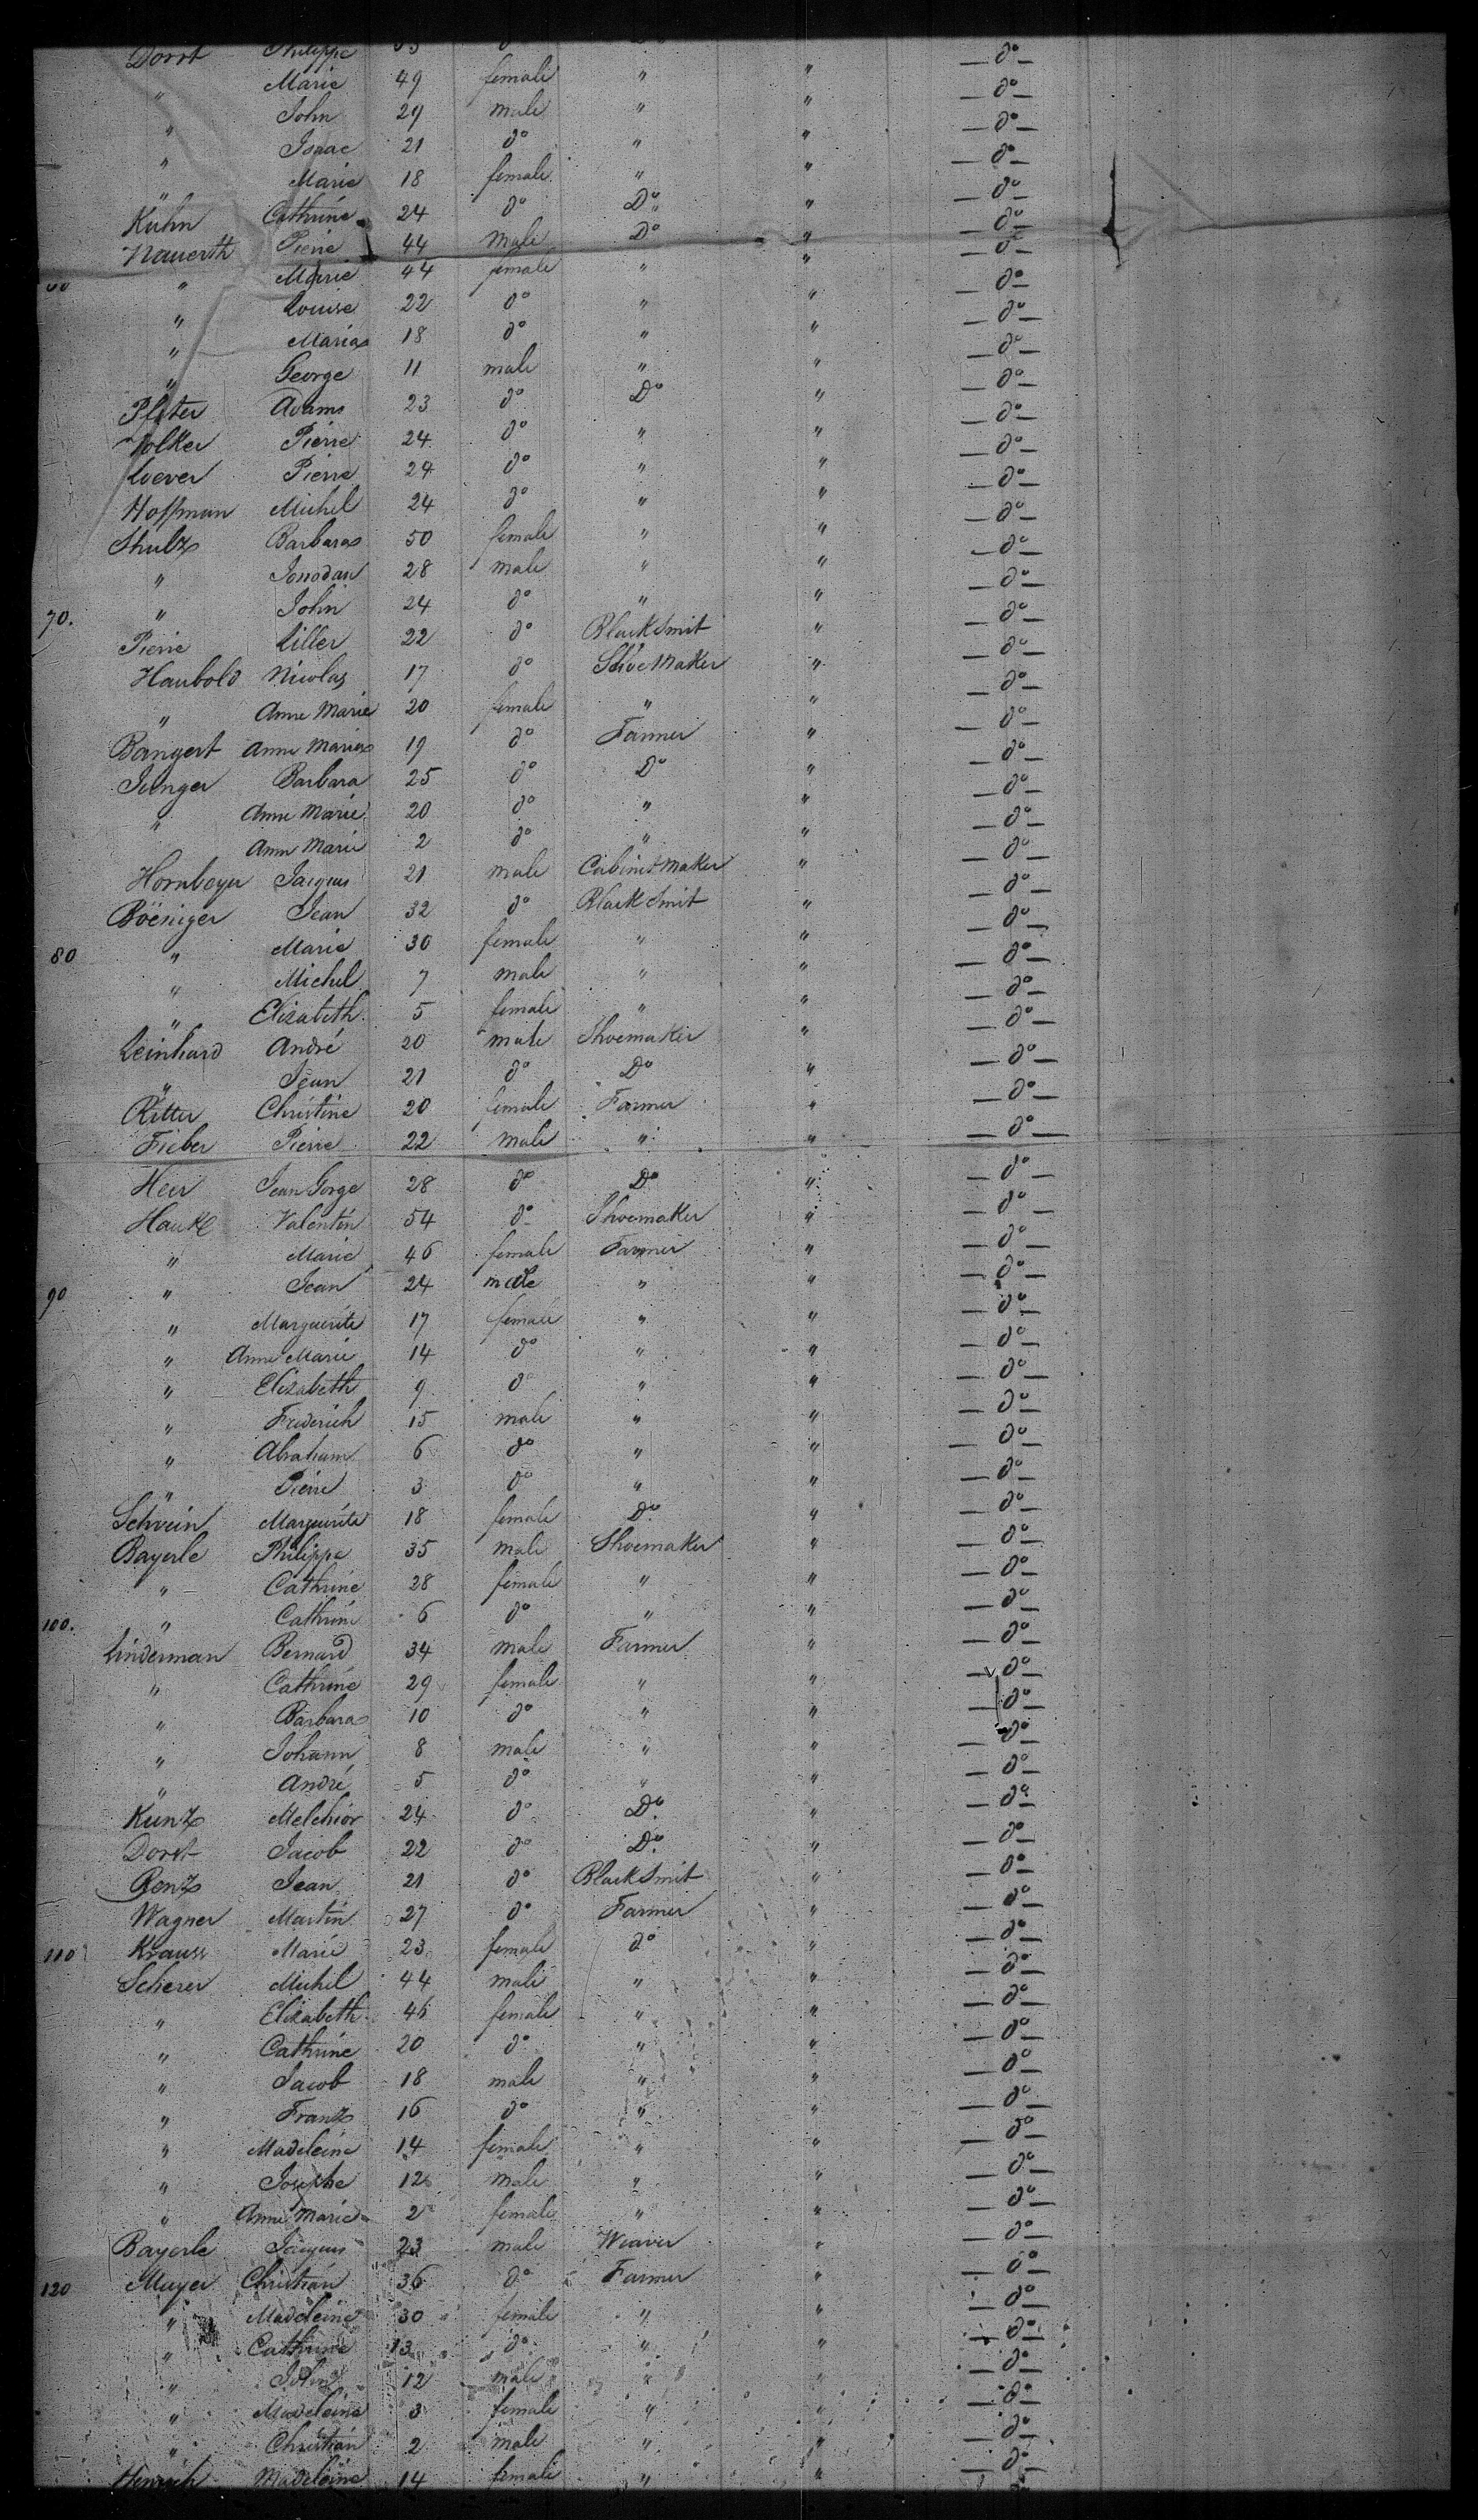 Dorst Philippe 53 do Do — do —
" Marie 49 female " " — do —
" John 29 male " " — do —
" Isaac 21 do " " — do —
" Marie 18 female " " — do —
Kuhn Cathrine 24 do Do " — do —
Nauerth Pierre 44 male Do " — do —
60 " Marie 44 female " " — do —
" Louise 22 do " " — do —
" Maria 18 do " " — do —
" George 11 male " " — do —
Pfister Adams 23 do Do " — do —
Volker Pierre 24 do " " — do —
Loever Pierre 24 do " " — do —
Hoffman Michel 24 do " " — do —
Shulz Barbara 50 female " " — do —
" Jonodan 28 male " " — do —
" John 24 do " " — do —
70. Pierre Liller 22 do BlackSmit " — do —
Haubold Nicolas 17 do ShoeMaker " — do —
" Anne Marie 20 female " " — do —
Bangert Anne Maria 19 do Farmer " — do —
Junger Barbara 25 do Do " — do —
" Anne Marie 20 do " " — do —
" Ann Marie 2 do " " — do —
Hornbeyer Jacques 21 male Cabinetmaker " — do —
Böeniger Jean 32 do BlackSmit " — do —
80 " Marie 30 female " " — do —
" Michel 7 male " " — do —
" Elizabeth 5 female " " — do —
Leinhard André 20 male Shoemaker " — do —
" Jean 21 do Do " — do —
Ritter Christine 20 female Farmer " — do —
Fieber Pierre 22 male " " — do —
Heir Jean Gorge 28 do Do " — do —
Hauk Valentin 54 do Shoemaker " — do —
" Marie 46 female Farmer " — do —
90 " Jean 24 male " " — do —
" Marguerite 17 female " " — do —
" Anne Marie 14 do " " — do —
" Elizabeth 9 do " " — do —
" Frederich 15 male " " — do —
" Abraham 6 do " " — do —
" Pierre 3 do " " — do —
Schwein Marguerite 18 female Do " — do —
Bayerle Philippe 35 male Shoemaker " — do —
" Cathrine 28 female " " — do —
100. " Cathrine 6 do " " — do —
Linderman Bernard 34 male Farmer " — do —
" Cathrine 29 female " " — do —
" Barbara 10 do " " — do —
" Johann 8 male " " — do —
" André 5 do " " — do —
Kunz Melchior 24 do Do " — do —
Dorst Jacob 22 do Do " — do —
Renz Jean 21 do BlackSmit " — do —
Wagner Martin 27 do Farmer " — do —
110 Krauss Marie 23 female do " — do —
Scherer Michel 44 male " " — do —
" Elizabeth 46 female " " — do —
" Cathrine 20 do " " — do —
" Jacob 18 male " " — do —
" Franz 16 do " " — do —
" Madeleine 14 female " " — do —
" Josephe 12 male " " — do —
" Anne Marie 2 female " " — do —
Bayerle Jacques 23 male Weaver " — do —
120 Meyer Christian 36 do Farmer " — do —
" Madeleine 30 female " " — do —
" Cathrine 13 do " " — do —
" John 12 male " " — do —
" Madeleine 3 female " " — do —
" Christian 2 male " " — do —
Henrich Madeleine 14 female " " — do —